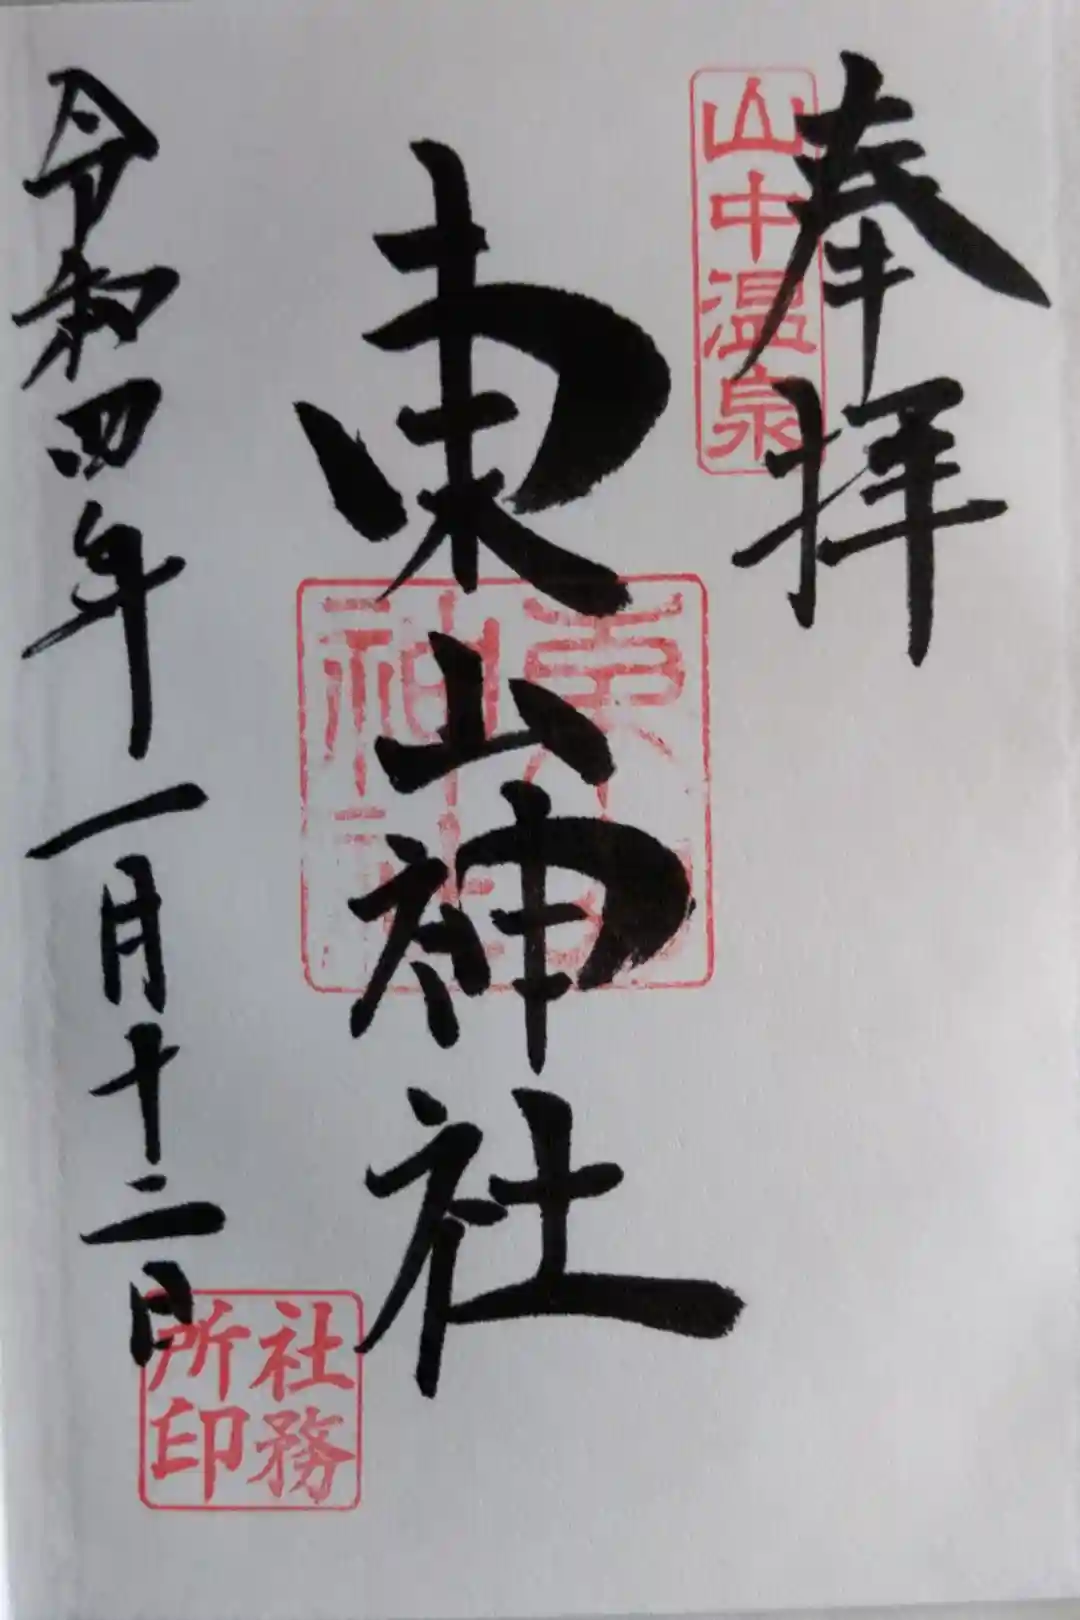 奉拝
山中温泉
東山神社
東山
神社
令和四年一月十二日
社務
所印